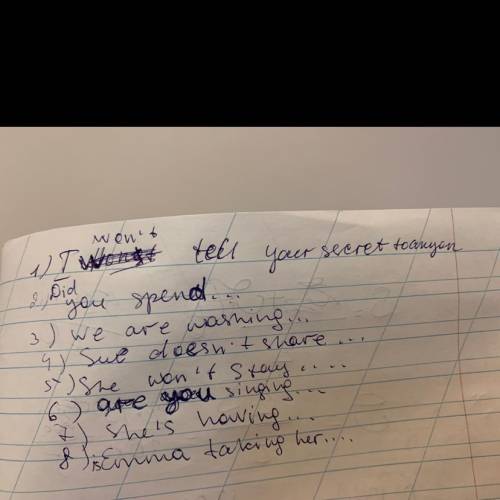 won't
1) I tell your secret to anyon
2) Did you spend...
3) We are washing...
4) Sue doesn't share...
5) She won't stay....
6) are you singing...
7) She's having...
8) is Emma taking her....